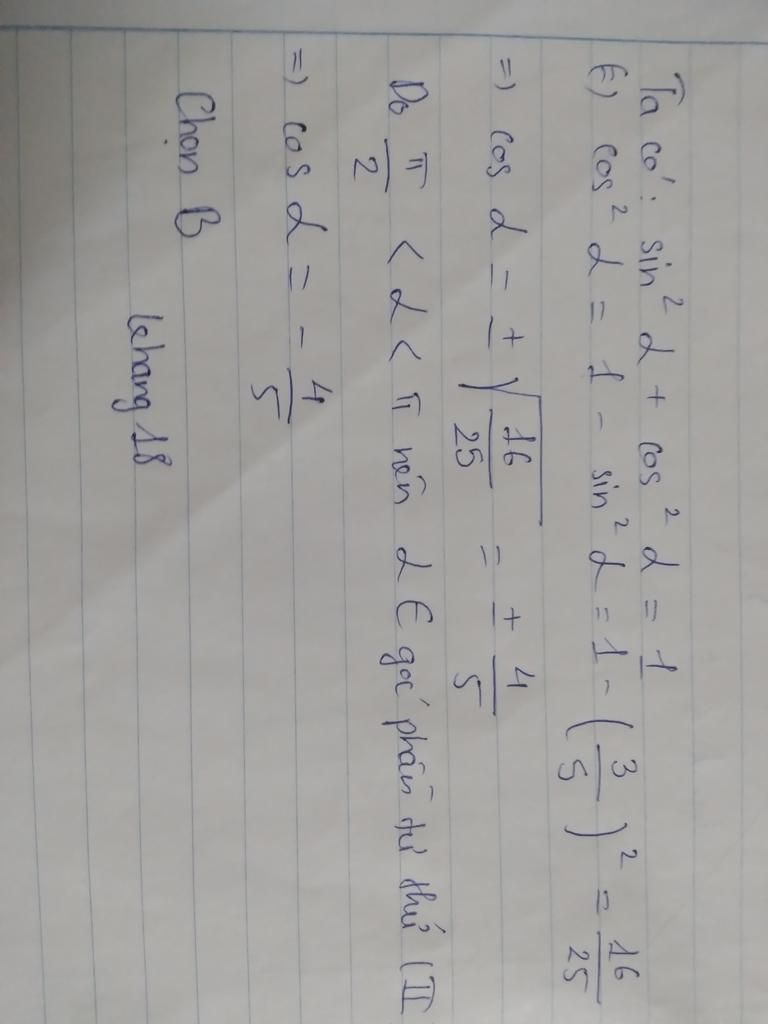 Ta có: sin² α + cos² α = 1
(=) cos² α = 1 - sin² α = 1 - (3/5)² = 16/25
=) cos α = ± √(16/25) = ± 4/5
Do π/2 < α < π nên α ∈ góc phần tư thứ (II
=) cos α = - 4/5
Chọn B
lehang18